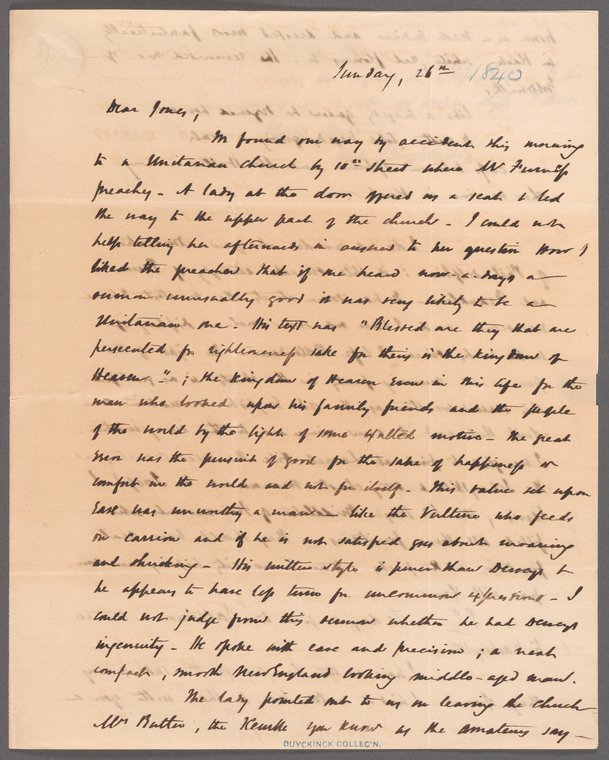 Sunday, 26th 1840
Dear Jones,
We found our way by accident this morning
to a Unitarian church by 10th Street where Mr Furness
preaches - A lady at the door offered us a seat & led
the way to the upper part of the church - I could not
help telling her afterwards in answer to her question How I
liked the preacher that if one heard now a-days a
sermon unusually good it was very likely to be a
Unitarian one - His text was "Blessed are they that are
persecuted for righteousness sake for theirs is the kingdom of
Heaven -"; the kingdom of Heaven even in this life for the
man who looked upon his family, friends and the people
of the world by the light of some exalted motive - The great
error was the pursuit of good for the sake of happiness or
comfort in the world and not for itself - This value set upon
Ease was unworthy a man - like the Vulture who feeds
on carrion and if he is not satisfied goes about moaning
and shrieking - His written style is purer than Deweys &
he appears to have less turn for uncommon expressions - I
could not judge from this sermon whether he had Deweys
ingenuity - He spoke with ease and precision; a neat
compact, smooth New England looking middle-aged man.
The lady pointed out to us on leaving the church
Mrs Butler, the Kemble you know as the amateurs say -
DUYCKINCK COLLEC'N.